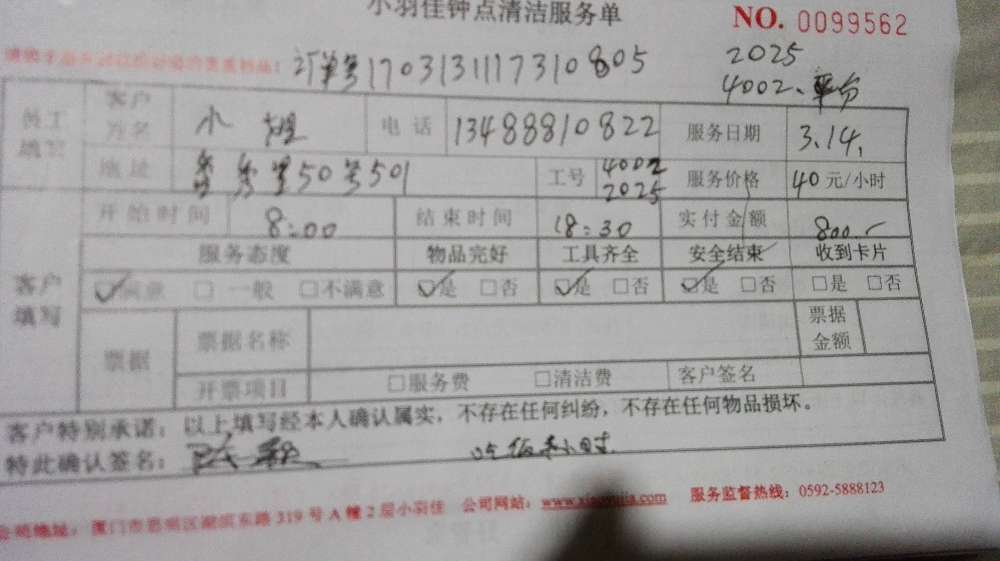 小羽佳钟点清洁服务单 NO. 0099562
订单号1703131117310805 2025
4002、平台
员工填写 客户方名 小姐 电话 13488810822 服务日期 3.14.
地址 秀里50号501 工号 4002 2025 服务价格 40元/小时
开始时间 8:00 结束时间 18:30 实付金额 800.-
客户填写 服务态度 物品完好 工具齐全 安全结束 收到卡片
☑满意 □一般 □不满意 ☑是 □否 ☑是 □否 ☑是 □否 □是 □否
票据 票据名称 票据金额
开票项目 □服务费 □清洁费 客户签名
客户特别承诺：以上填写经本人确认属实，不存在任何纠纷，不存在任何物品损坏。
特此确认签名： 吃饭半小时
公司地址：厦门市思明区湖滨东路319号A幢2层小羽佳 公司网站： 服务监督热线：0592-5888123